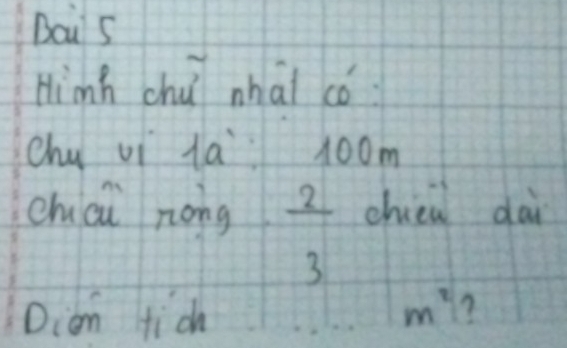 Bài 5
Hình chữ nhật có:
Chu vi là: 100m
Chiều rộng 2/3 chiều dài
Diện tích .... m²?